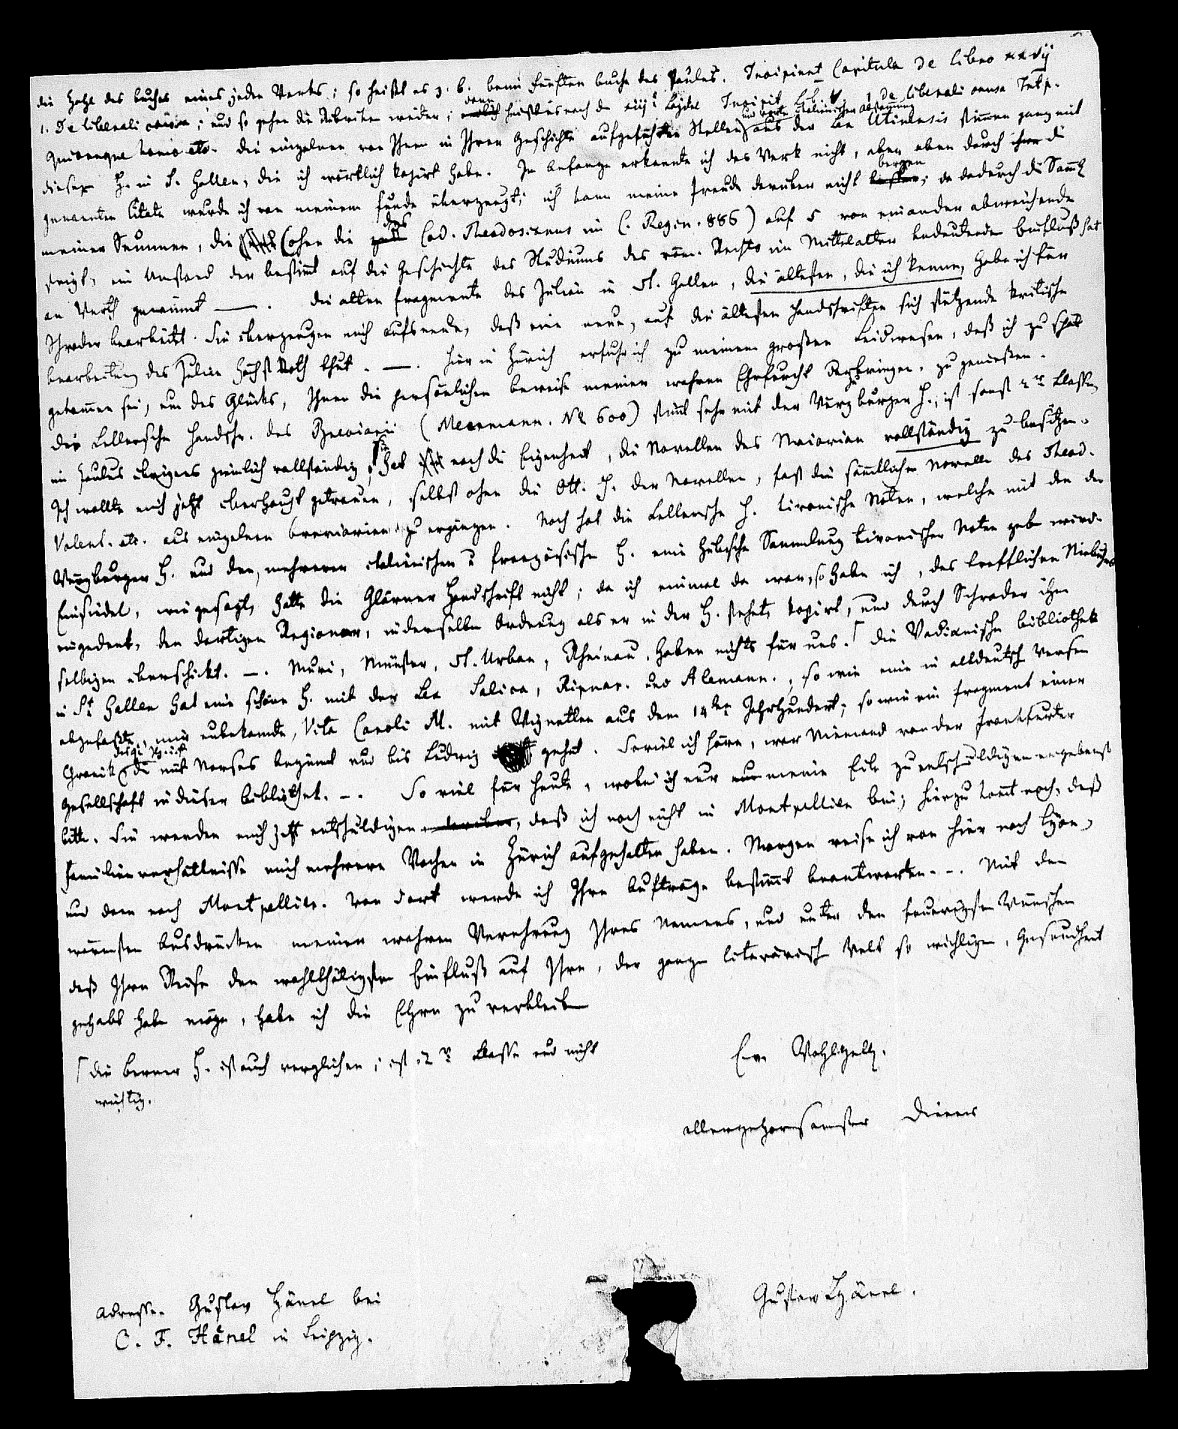 die Zahl des Buches eines jeden Werks; so heißt es z. B. beim fünften Buche des Paulus. Incipiunt Capitula de libro xxvij
1. De liberali causa; und so gehen die Rubriken weiter; dann heißt es nach der Incipit de liberali causa Intp.
Quicunque homo etc. die einzelnen von Ihnen in Ihrer Geschichte aufgeführten Stellen aus der Lex Utinensis stimmen ganz mit
dieser H. in S. Gallen, die ich wirklich kopirt habe. Im Anfange erkannte ich das Werk nicht, aber eben durch die
genannten Citate wurde ich von meinem Funde überzeugt; ich kann meine Freude darüber nicht bergen; da dadurch die Samml.
meiner Summen, die (ohne die des Cod. Theodosianus im C. Regin. 886) auf 5 von einander abweichende
steigt, ein Umstand der bestimmt auf die Geschichte des Studiums des röm. Rechts im Mittelalter bedeutenden Einfluß hat
an Werth gewinnt —. Die alten Fragmente des Julian in St. Gallen, die ältesten, die ich kenne, habe ich für
Schrader bearbeitet. Sie überzeugen mich aufs neue, daß eine neue, auf die ältesten Handschriften sich stützende kritische
Bearbeitung des Julian höchst Noth thut. —. Hier in Zürich erfuhr ich zu meinem großen Leidwesen, daß ich zu spät
gekommen sei, um das Glück, Ihnen die persönlichen Beweise meiner wahren Ehrfurcht zu genießen.
Die Kellersche Handschr. des Breviarii (Meermann. No 600) stimmt sehr mit der Würzburger H., ist sonst 2ter Classe,
im Paulus übrigens ziemlich vollständig, hat noch die Eigenheit, die Novellen des Maiorian vollständig zu besitzen.
Ich wollte mich jetzt überhaupt getrauen, selbst ohne die Ott. H. der Novellen, fast die sämtlichen Novellen des Theod.
Valent. etc. aus einzelnen Breviarien zu ergänzen. Noch hat die Kellersche H. tironische Noten, welche mit denen der
Würzburger H. und den mehreren italienischen & französischen H. eine hübsche Sammlung tironischer Noten geben wird.
Einsiedel, wie gesagt, hatte die Glarner Handschrift nicht; da ich einmal da war, so habe ich, des trefflichen Niebuhrs
eingedenk, den dortigen Regionar, in derselben Ordnung als er in der H. steht, kopirt, und durch Schrader ihm
selbigen überschickt. —. Muri, Münster, St. Urban, Rheinau, haben nichts für uns.⌈ Die Vadianische Bibliothek
in St Gallen hat eine schöne H. mit der Lex Salica, Ripuar. und Alamann., so wie eine in altdeutsch Versen
abgefaßte, mir unbekannte, Vita Caroli M. mit Vignetten aus dem 14ten Jahrhundert; so wie ein Fragment einer
Chronik, die mit Moses beginnt und bis Ludwig geht. Soviel ich höre, war Niemand von der Frankfurter
Gesellschaft in dieser Bibliothek. —. So viel für heute, wobei ich nur meine Eile zu entschuldigen ergebenst
bitte. Sie werden mich jetzt entschuldigen, daß ich noch nicht in Montpellier bin; hierzu kommt noch, daß
Familienverhältnisse mich mehrere Wochen in Zürich aufgehalten haben. Morgen reise ich von hier nach Lyon,
und dann nach Montpellier. Von dort werde ich Ihre Aufträge bestimmt beantworten. —. Mit den
wärmsten Ausdrücken meiner wahren Verehrung Ihres Namens, und unter den feurigsten Wünschen
daß Ihre Reise den wohlthätigsten Einfluß auf Ihre, der ganzen literärischen Welt so wichtigen, Gesundheit
gehabt haben möge, habe ich die Ehre zu verbleiben
Ew. Wohlgeb.
⌈ die Berner H. ist auch verglichen; ist 2r Classe und nicht
wichtig.
allergehorsamster Diener
Gustav Hänel.
Adresse. Gustav Hänel bei
C. F. Hänel in Leipzig.